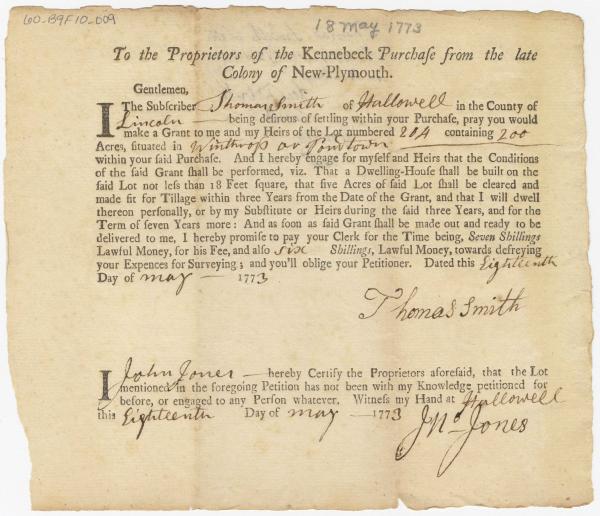 60-B9F10-009
18 May 1773
To the Proprietors of the Kennebeck Purchaſe from the late
Colony of New-Plymouth.
Gentlemen,
I The Subſcriber Thomas Smith of Hallowell in the County of
Lincoln — being deſirous of ſettling within your Purchaſe, pray you would
make a Grant to me and my Heirs of the Lot numbered 204 containing 200
Acres, ſituated in Winthrop or Pondtown
within your ſaid Purchaſe. And I hereby engage for myſelf and Heirs that the Conditions
of the ſaid Grant ſhall be performed, viz. That a Dwelling-Houſe ſhall be built on the
ſaid Lot not leſs than 18 Feet ſquare, that five Acres of ſaid Lot ſhall be cleared and
made fit for Tillage within three Years from the Date of the Grant, and that I will
dwell thereon perſonally, or by my Subſtitute or Heirs during the ſaid three Years, and for the
Term of ſeven Years more: And as ſoon as ſaid Grant ſhall be made out and ready to
be delivered to me, I hereby promiſe to pay your Clerk for the Time being, Seven Shillings
Lawful Money, for his Fee, and alſo six Shillings, Lawful Money, towards defreying
your Expences for Surveying; and you'll oblige your Petitioner. Dated this Eighteenth
Day of may — 1773
Thomas Smith
I John Jones — hereby Certify the Proprietors aforeſaid, that the Lot
mentioned in the foregoing Petition has not been with my Knowledge petitioned for
before, or engaged to any Perſon whatever. Witneſs my Hand at Hallowell
this Eighteenth Day of may — 1773
Jno. Jones